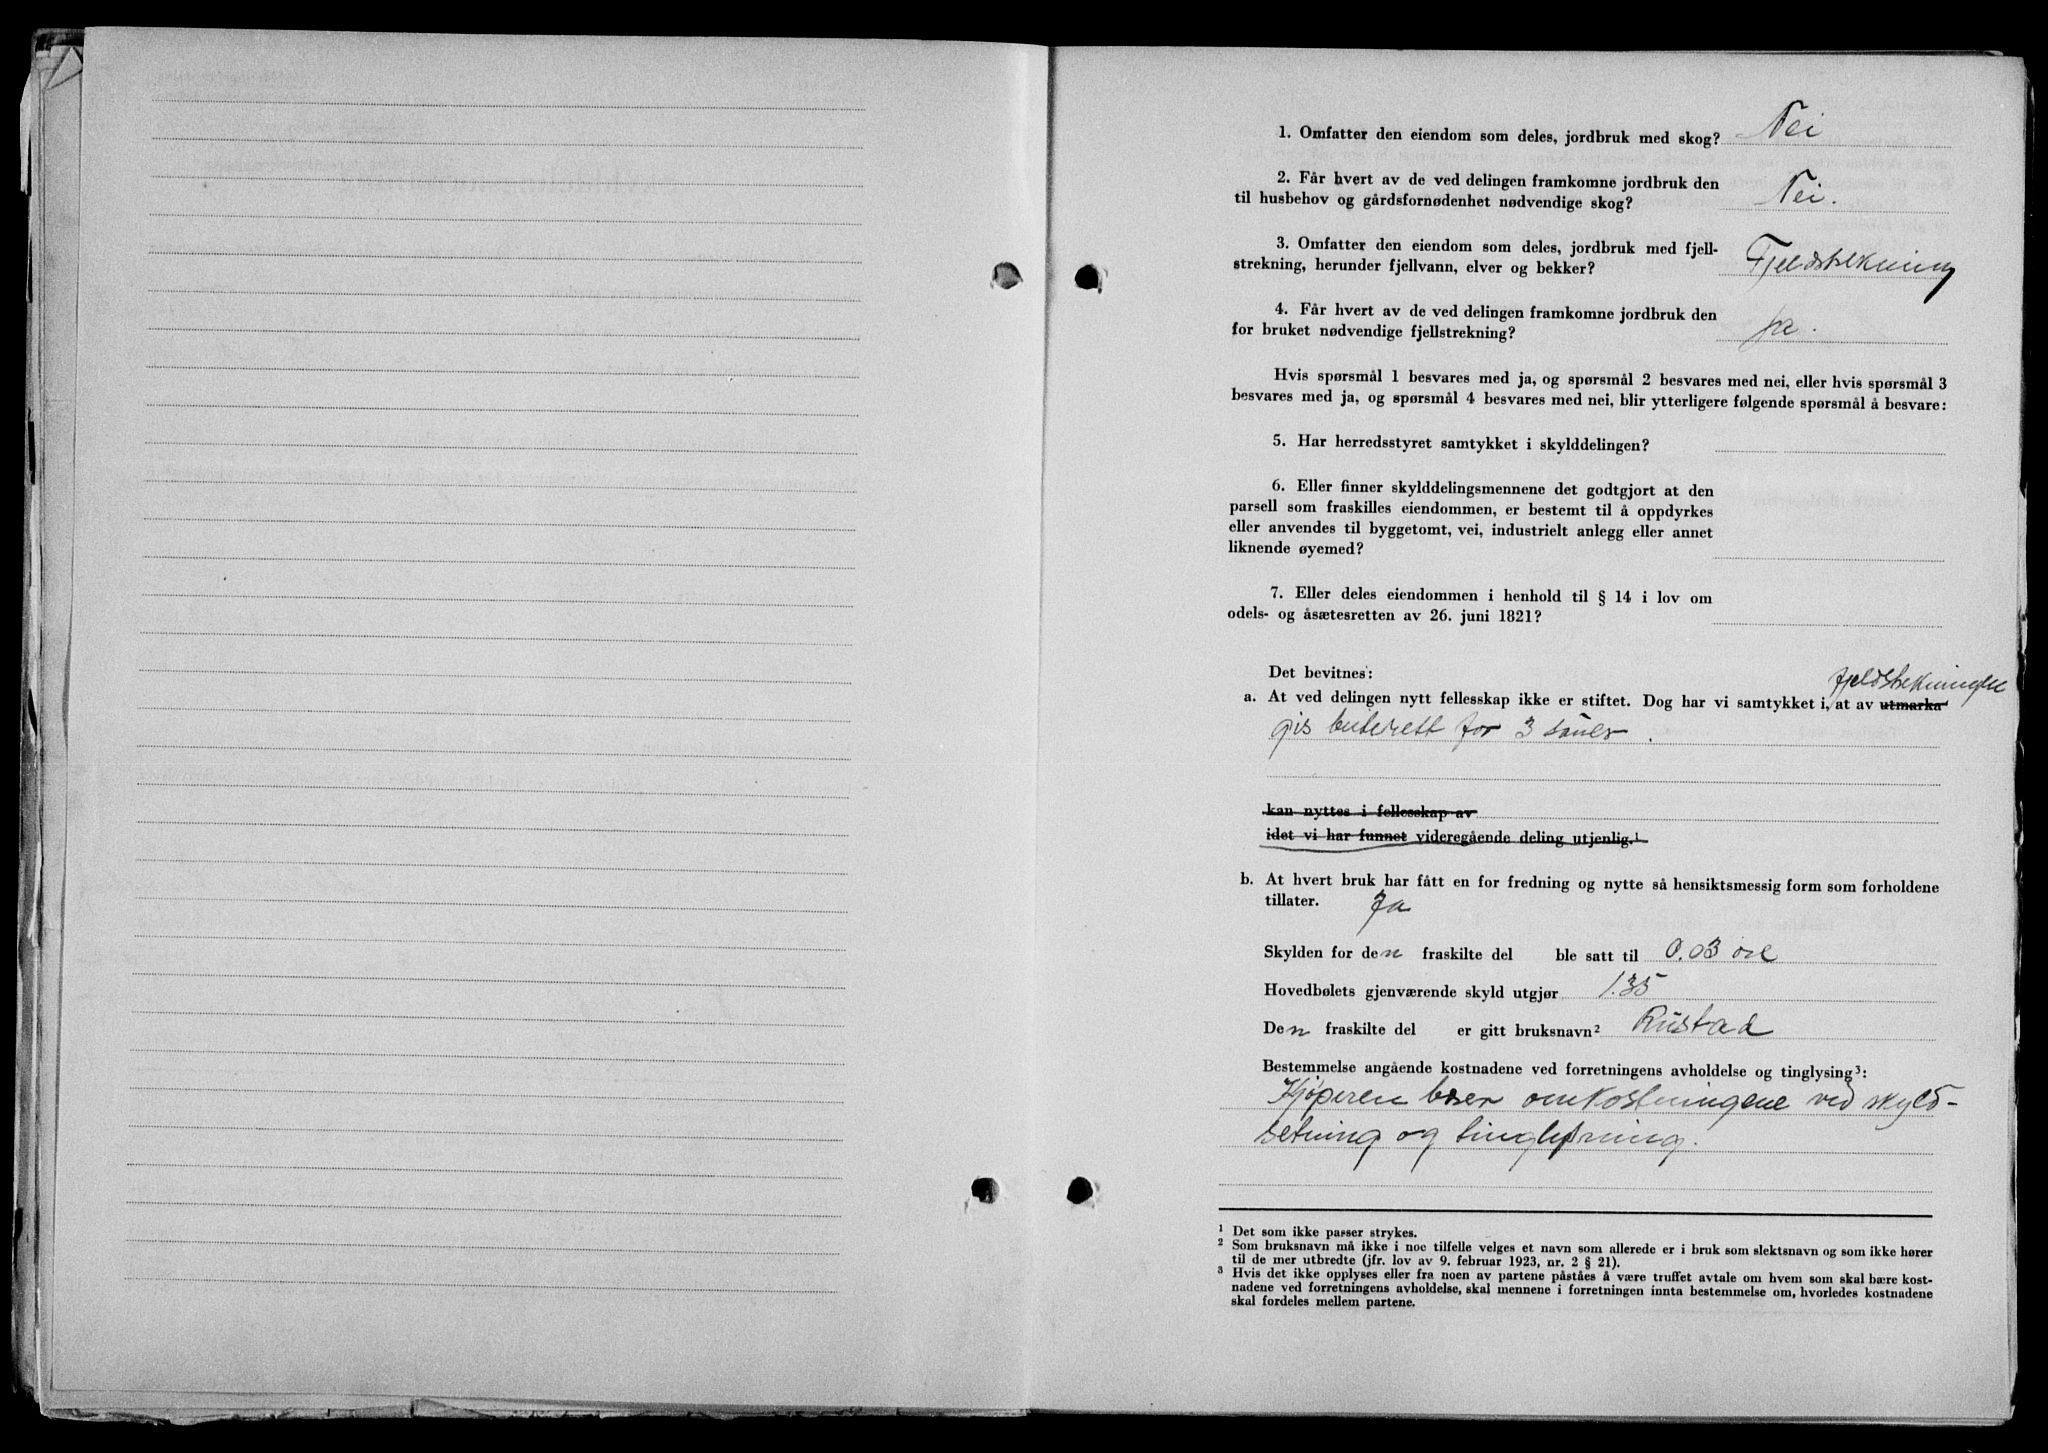 1. Omfatter den eiendom som deles, jordbruk med skog? Nei
2. Får hvert av de ved delingen framkomne jordbruk den
til husbehov og gårdsfornødenhet nødvendige skog? Nei.
3. Omfatter den eiendom som deles, jordbruk med fjell-
strekning, herunder fjellvann, elver og bekker? Fjeldstrekning
4. Får hvert av de ved delingen framkomne jordbruk den
for bruket nødvendige fjellstrekning? Ja.
Hvis spørsmål 1 besvares med ja, og spørsmål 2 besvares med nei, eller hvis spørsmål 3
besvares med ja, og spørsmål 4 besvares med nei, blir ytterligere følgende spørsmål å besvare:
5. Har herredsstyret samtykket i skylddelingen?
6. Eller finner skylddelingsmennene det godtgjort at den
parsell som fraskilles eiendommen, er bestemt til å oppdyrkes
eller anvendes til byggetomt, vei, industrielt anlegg eller annet
liknende øyemed?
7. Eller deles eiendommen i henhold til § 14 i lov om
odels- og åsætesretten av 26. juni 1821?
Det bevitnes:
fjeldstrekningen
a. At ved delingen nytt fellesskap ikke er stiftet. Dog har vi samtykket i, at av utmarka
gis beiterett for 3 sauer.
kan nyttes i fellesskap av
idet vi har funnet videregående deling utjenlig.¹
b. At hvert bruk har fått en for fredning og nytte så hensiktsmessig form som forholdene
tillater. Ja
Skylden for den fraskilte del ble satt til 0.03 øre
Hovedbølets gjenværende skyld utgjør 1.35
Den fraskilte del er gitt bruksnavn² Rustad
Bestemmelse angående kostnadene ved forretningens avholdelse og tinglysing³:
Kjøperen bær omkostningene ved skyld-
setning og tinglysning.
¹ Det som ikke passer strykes.
² Som bruksnavn må ikke i noe tilfelle velges et navn som allerede er i bruk som slektsnavn og som ikke hører
til de mer utbredte (jfr. lov av 9. februar 1923, nr. 2 § 21).
³ Hvis det ikke opplyses eller fra noen av partene påståes å være truffet avtale om hvem som skal bære kost-
nadene ved forretningens avholdelse, skal mennene i forretningen innta bestemmelse om, hvorledes kostnadene
skal fordeles mellem partene.